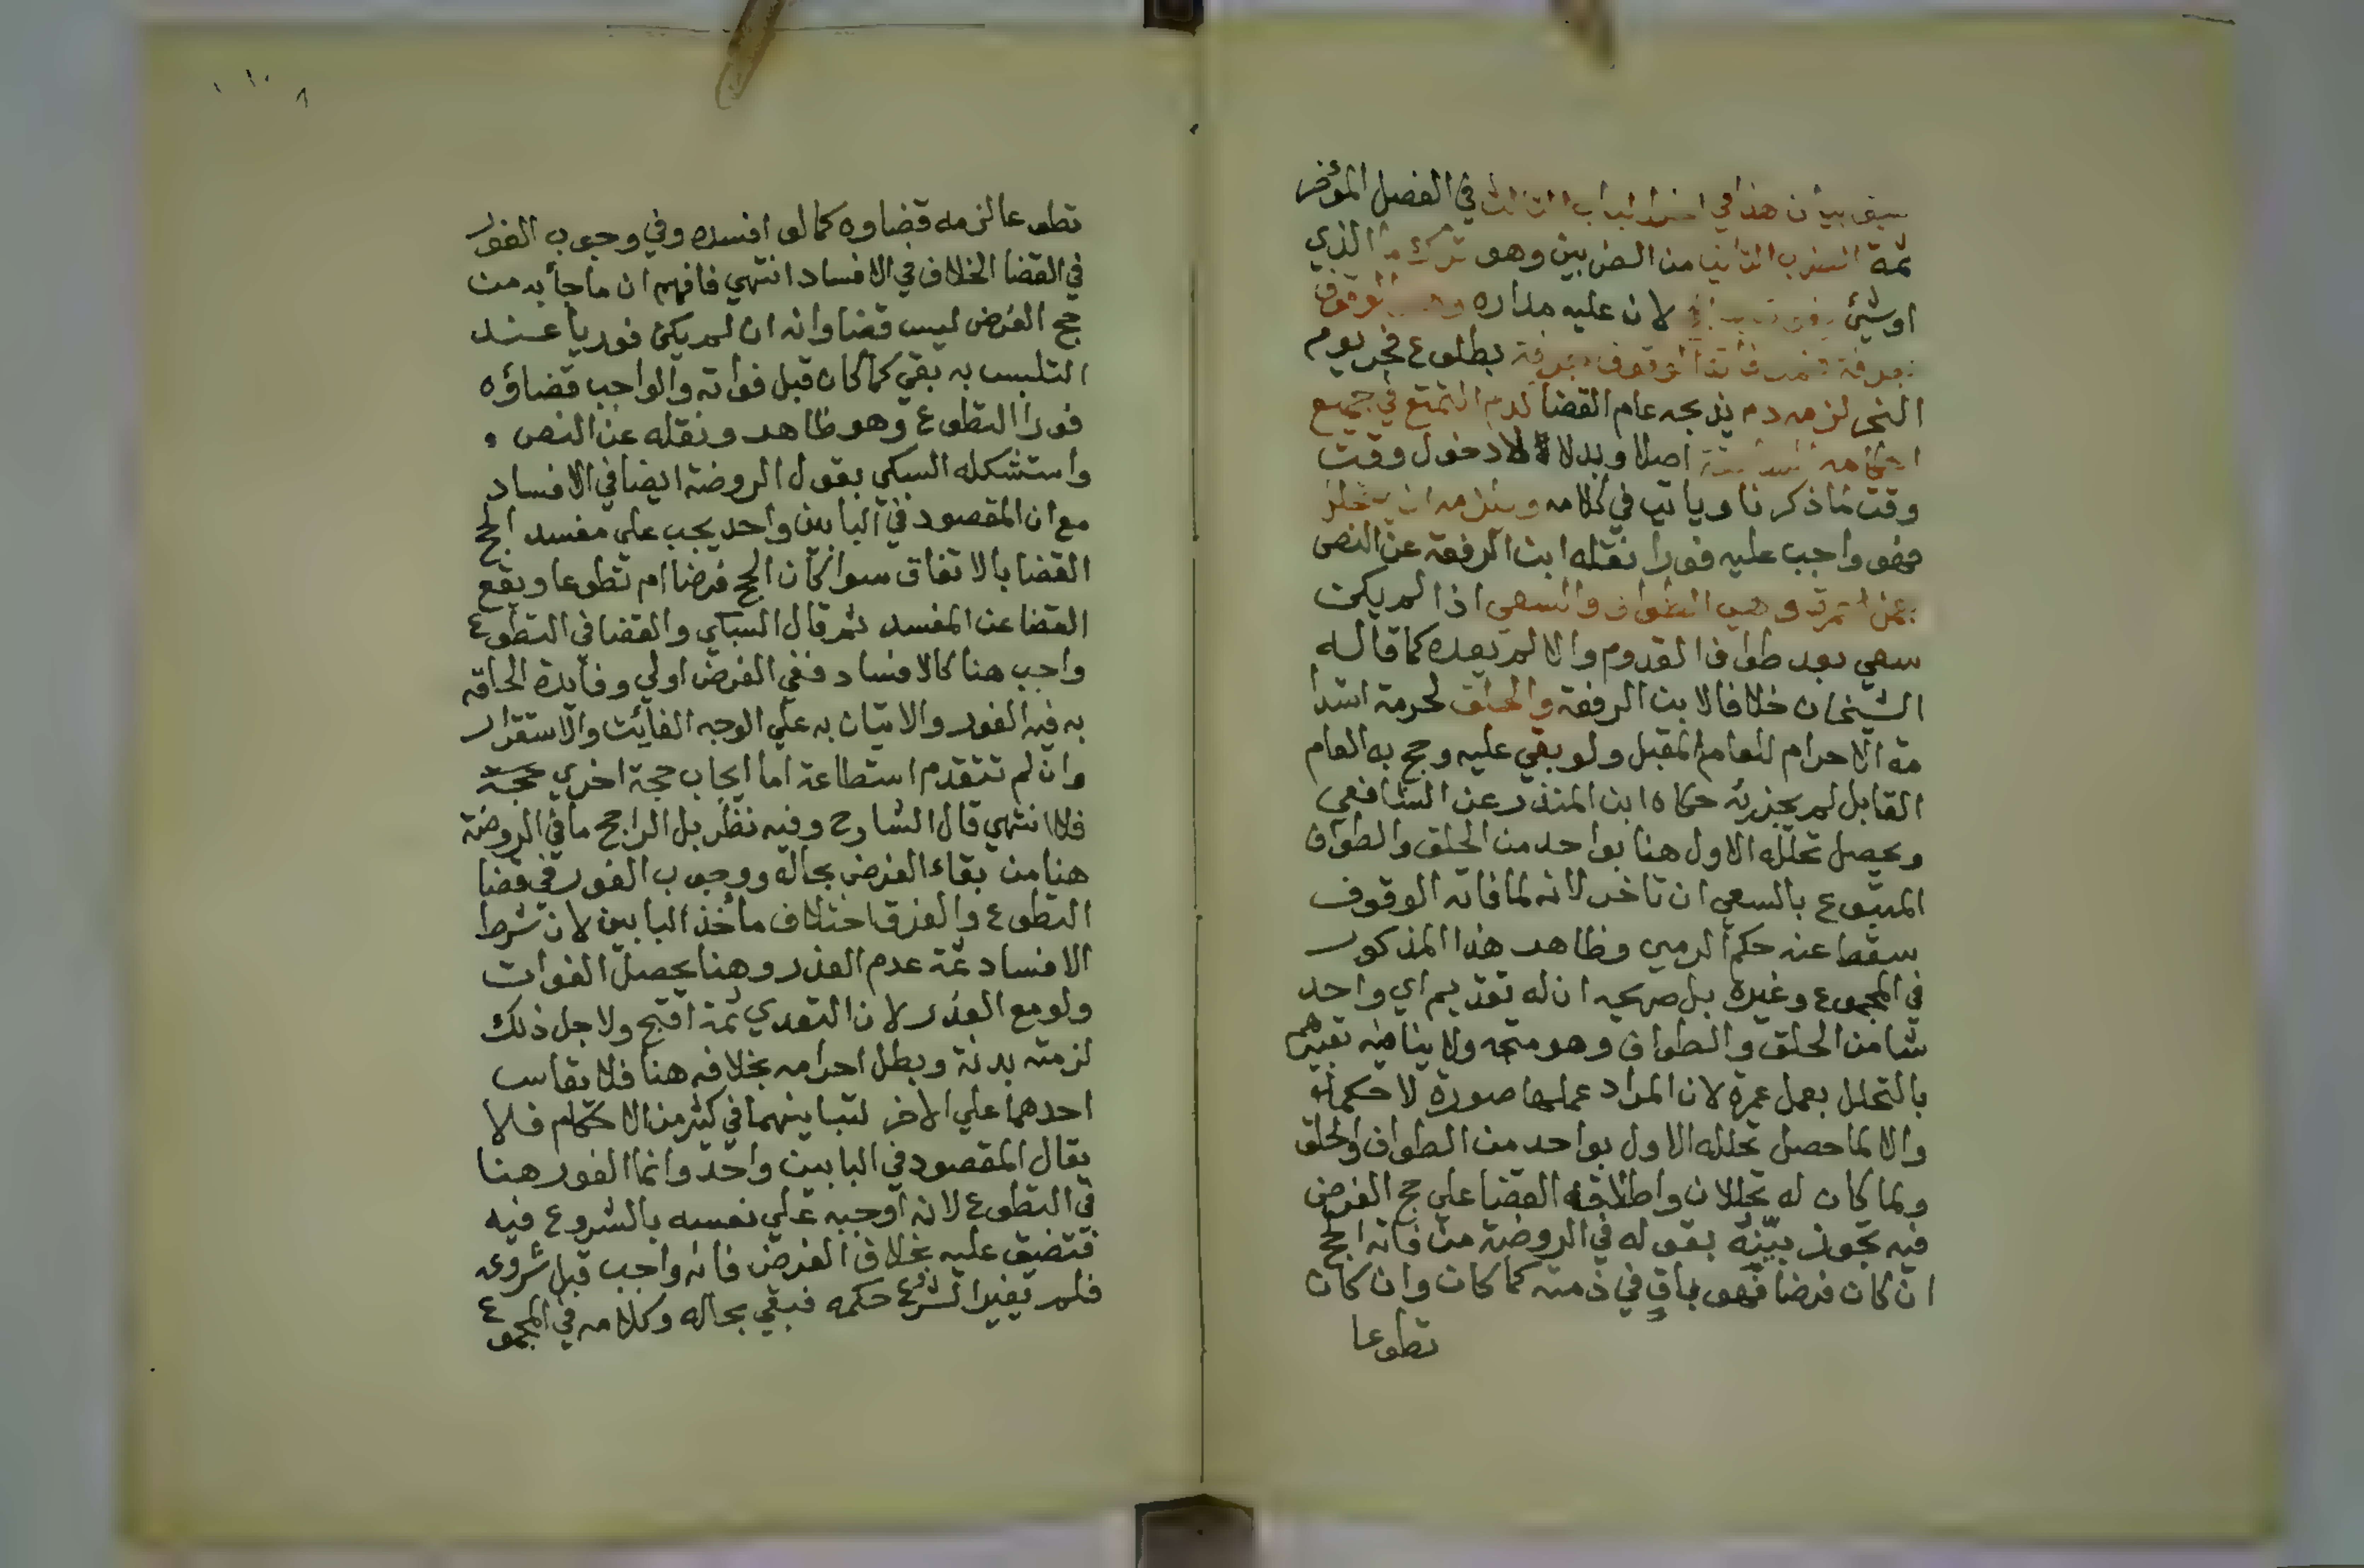 سبق بيان هذا في اخر الباب الثالث في الفصل المؤخر
ثمة الضرب الثاني من الضربين وهو ترك ما الذي
اوشئ لان عليه مداره وهو الوقوف
بعرفة فمن فاته الوقوف بعرفة بطلوع فجر يوم
النحر لزمه دم يذبحه عام القضا كدم التمتع في جميع
احكامه السابقة اصلا وبدلا لا دخول وقت
وقت ما ذكرنا وياتي في كلامه ويلزمه ان يتحلل
فهو واجب عليه فورا نقله ابن الرفعة عن النص
بعمل عمرة وهي الطواف والسعي اذا لم يكن
سعي بعد طواف القدوم والا لم يعده كما قاله
الشيخان خلافا لابن الرفعة والحلق لحرمة استدا
مة الاحرام للعام المقبل ولو بقي عليه وحج به العام
القابل لم يجزئه حكاه ابن المنذر عن الشافعي
ويحصل تحلله الاول هنا بواحد من الحلق والطواف
المتبوع بالسعي ان تاخر لانه لما فاته الوقوف
سقط عنه حكم الرمي وظاهر هذا المذكور
في المجموع وغيره بل صريحه ان له تقديم اي واحد
شا من الحلق والطواف وهو متجه ولا ينافيه تعبيرهم
بالتحلل بعمل عمرة لان المراد عملها صورة لا حكما
والا لما حصل تحلله الاول بواحد من الطواف والحلق
ولما كان له تحللان واطلاقه القضا علي حج الفرض
فيه تجوز بينه بقوله في الروضة من فاته الحج
ان كان فرضا فهو باق في ذمته كما كان وان كان
تطوعا
تطوعا لزمه قضاوه كما لو افسده وفي وجوب الفور
في القضا الخلاف في الافساد انتهي فافهم ان ما جأ به من
حج الفرض ليس قضا وانه ان لم يكن فوريا عند
التلبس به بقي كما كان قبل فواته والواجب قضاؤه
فورا التطوع وهو ظاهر ونقله عن النص و
واستشكله السبكي بقول الروضة ايضا في الافساد
مع ان المقصود في البابين واحد يجب علي مفسد الحج
القضا بالاتفاق سوا كان الحج فرضا ام تطوعا ويقع
القضا عن المفسد ثم قال السبكي والقضا في التطوع
واجب هنا كالافساد ففي الفرض اولي وفايدة الحاقه
به فيه الفور والاتيان به علي الوجه الفائت والاستقرار
وان لم تتقدم استطاعة اما ايجاب حجة اخري حجة
فلا انتهي قال الشارح وفيه نظر بل الراجح ما في الروضة
هنا من بقاء الفرض بحاله ووجوب الفور في قضا
التطوع والفرق اختلاف مأخذ البابين لان شرط
الافساد ثمة عدم العذر وهنا يحصل الفوات
ولو مع العذر لان التعدي ثمة اقبح ولاجل ذلك
لزمته بدنة وبطل احرامه بخلافه هنا فلا يقاس
احدهما علي الاخر لتباينهما في كثير من الاحكام فلا
يقال المقصود في البابين واحد وانما الفور هنا
في التطوع لانه اوجبه علي نفسه بالشروع فيه
فتضيق عليه بخلاف الفرض فانه واجب قبل شروعه
فلم يغير الشروع حكمه فبقي بحاله وكلامه في المجموع